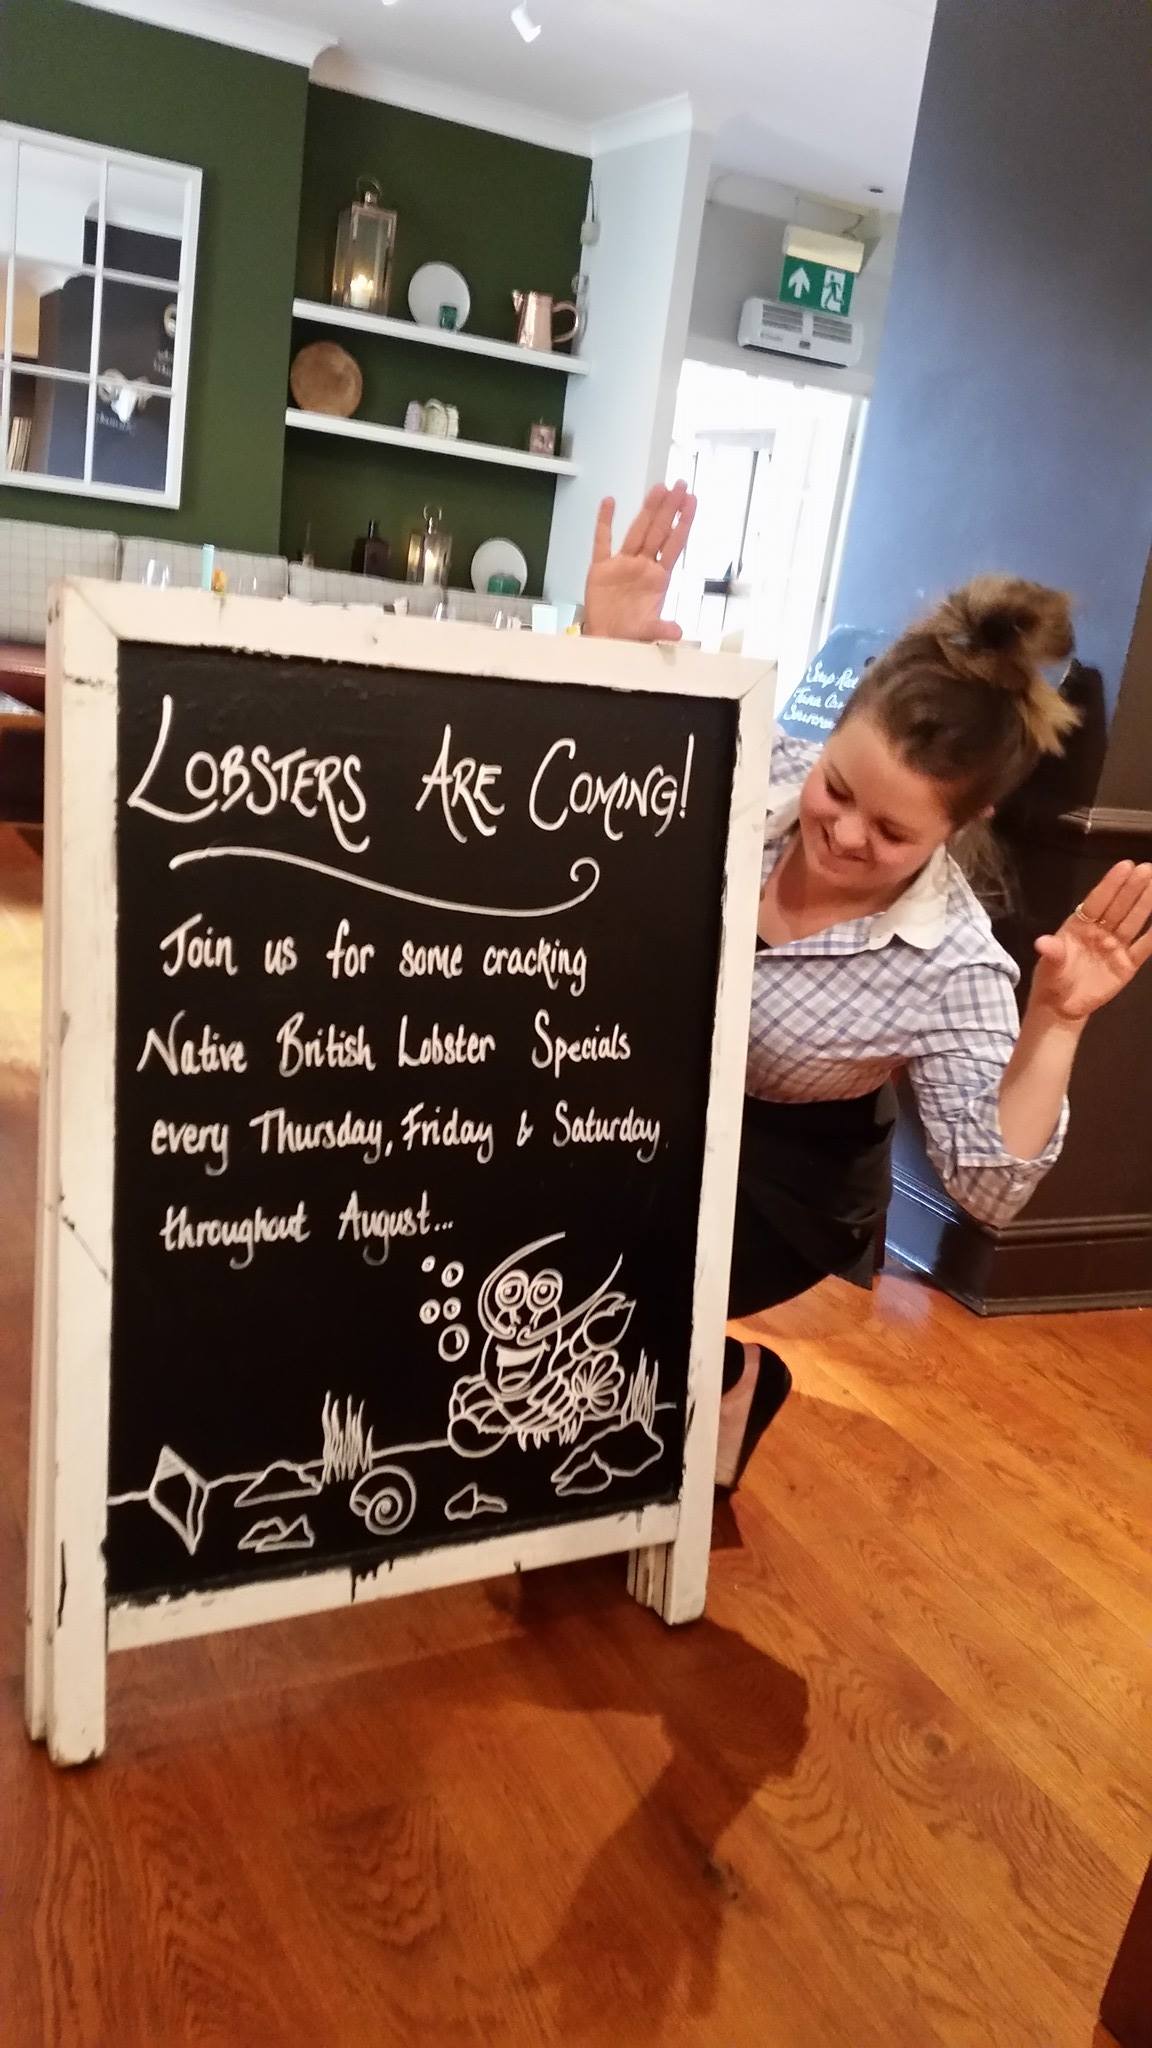 LOBSTERS ARE COMING!
Join us for some cracking
Native British Lobster Specials
every Thursday, Friday & Saturday
throughout August...
Soup
Tuna